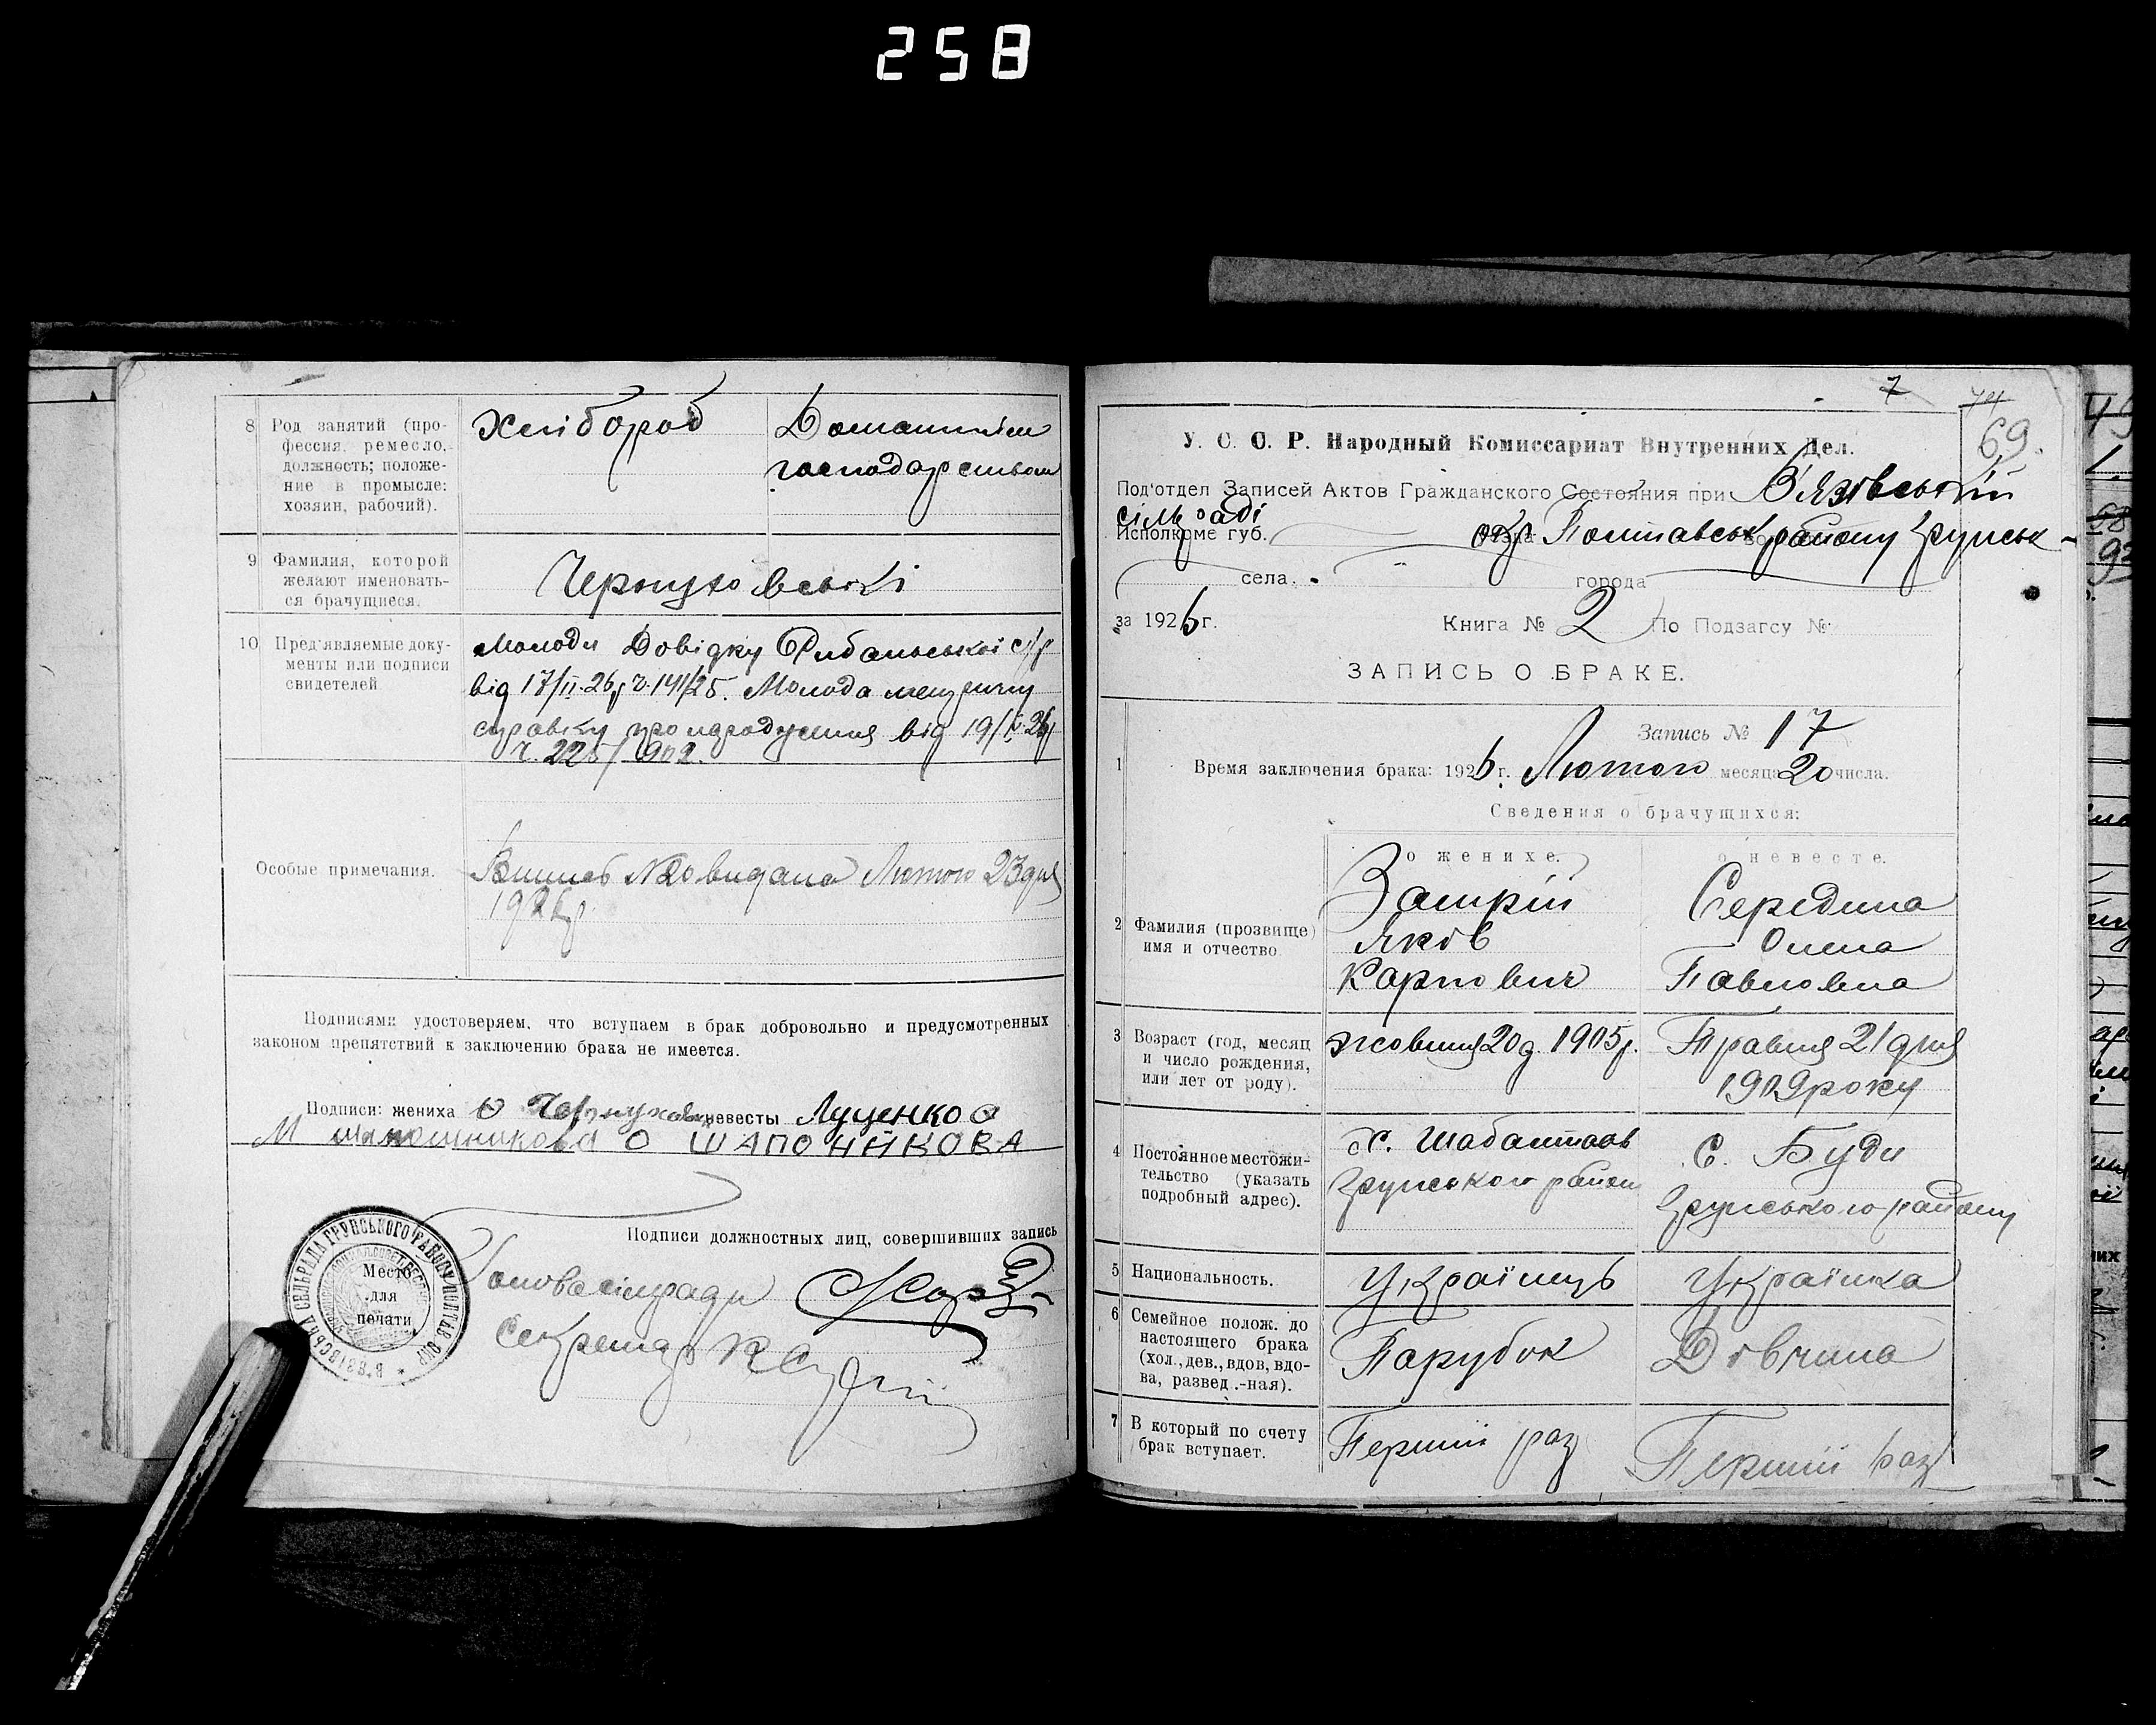 258
8 Род занятий (про-
фессия, ремесло,
должность; положе-
ние в промысле:
хозяин, рабочий).
Хлібороб
Домашнім
господарством
9 Фамилия, которой
желают именовать-
ся брачущиеся.
Чернуховські
10 Пред'являемые доку-
менты или подписи
свидетелей
Молоди Довідку Рибальської с/р
від 17/II-26р ч. 141/25. Молода метричну
справку про народження від 19/
ч. 225/902.
Особые примечания.
Выпись №20 видана Лютого 23 дня
1926р.
Подписями удостоверяем, что вступаем в брак добровольно и предусмотренных
законом препятствий к заключению брака не имеется.
Подписи: жениха невесты Луценко О
М Шапошникова О ШАПОНИКОВА
Подписи должностных лиц, совершивших запись
Голова сільради
Секретар
В'ЯЗІВСЬКА СЕЛЬРАДА ГРУНСЬКОГО РАЙОНУ ПОЛТАВ. ОКР
Место
для
печати
7
74
69
У. С. С. Р. Народный Комиссариат Внутренних Дел.
Под'отдел Записей Актов Гражданского Состояния при В'язівській
сільраді
Исполкоме губ. окр Полтавськ району Грунськ-
села города
за 1926 г. Книга № 2 По Подзагсу №
ЗАПИСЬ О БРАКЕ.
Запись № 17
1 Время заключения брака: 1926 г. Лютого месяца 20 числа.
Сведения о брачущихся:
о женихе. о невесте.
2 Фамилия (прозвище)
имя и отчество
Яків
Карпович
Середина
Олена
Павловна
3 Возраст (год, месяц
и число рождения,
или лет от роду).
Жовтня 20 д. 1905 р.
Травня 21 дня
1909 року
4 Постоянное местожи-
тельство (указать
подробный адрес).
Х. Шабалтаєв
Грунського району
С. Буди
Грунського району
5 Национальность.
Українець
Українка
6 Семейное полож. до
настоящего брака
(хол., дев., вдов, вдо-
ва, развед.-ная).
Парубок
Дівчина
7 В который по счету
брак вступает.
Перший раз
Перший раз